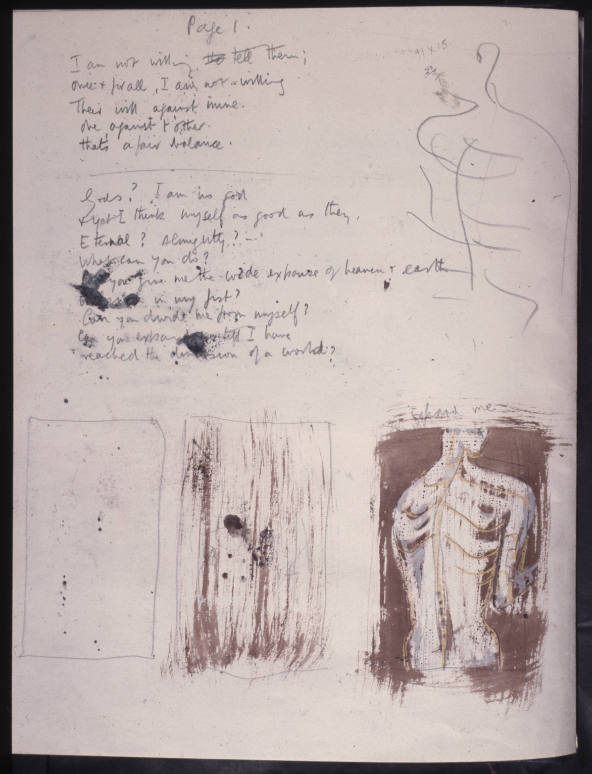 Page 1.
I am not willing, to tell them;
once + for all, I am not willing
Their will against mine.
one against t'other.
thats a fair balance.
Gods? I am no god
+ yet I think myself as good as they.
Eternal? Almighty? -
What can you do?
you give me the wide expanse of heaven + earth
in my fist?
Can you divide me from myself?
Can you expand me till I have
reached the dimension of a world?
expand me